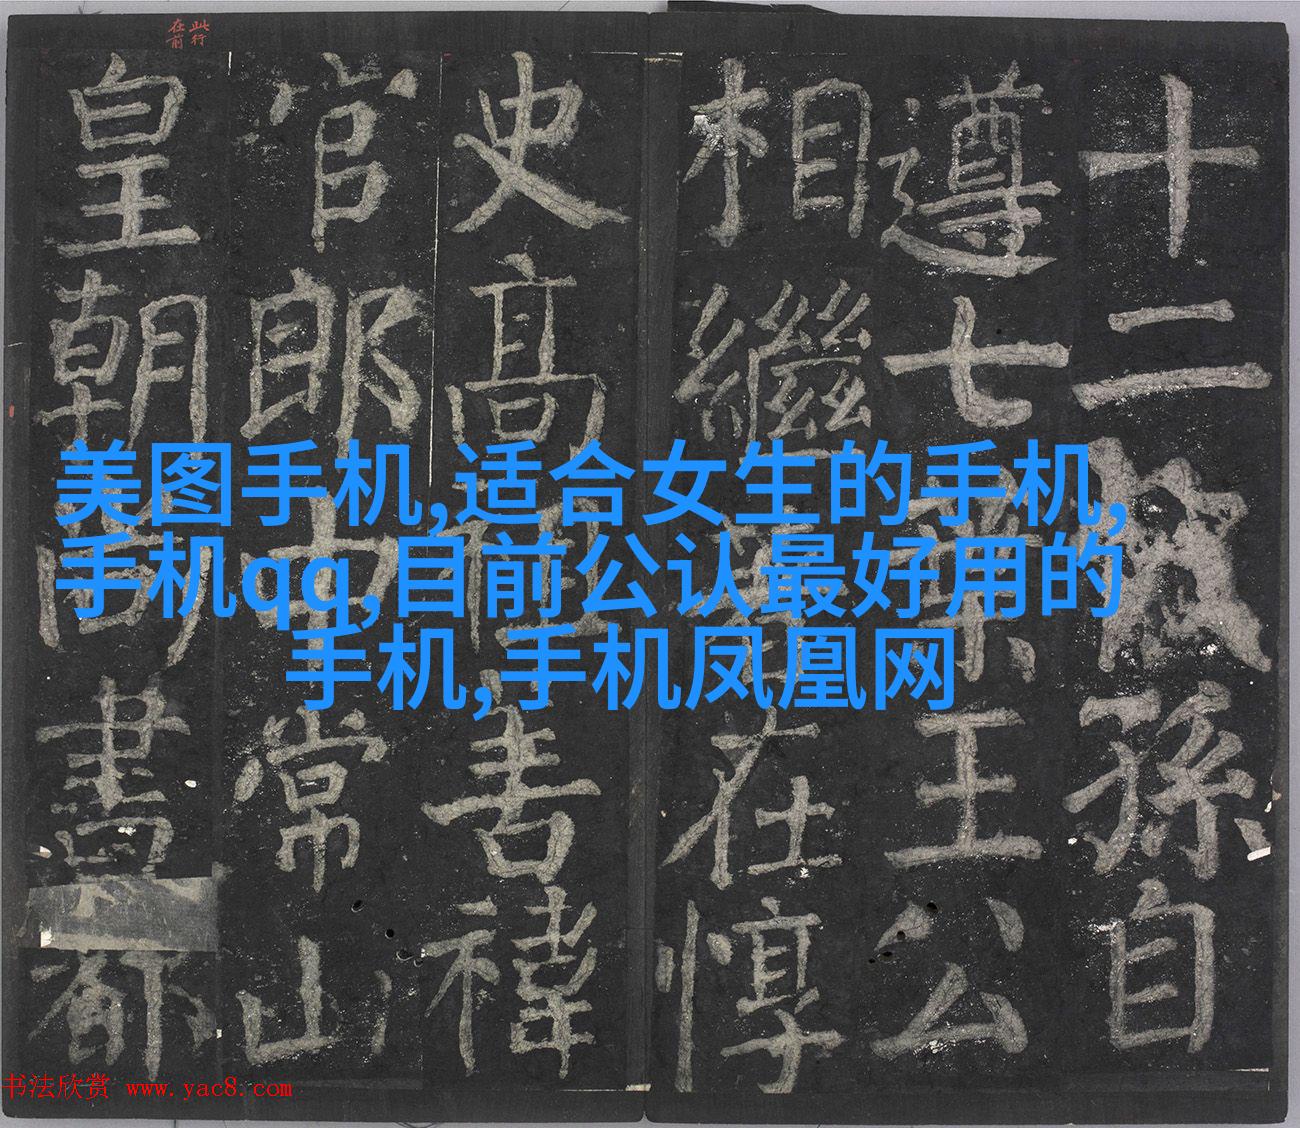 此行
在前
十二孫自
遵七王公
相繼在惇
史高禕
官郎中常山
皇朝尚書都
美图手机,适合女生的手机,
手机qq,目前公认最好用的
手机,手机凤凰网
书法欣赏 www.yac8.com